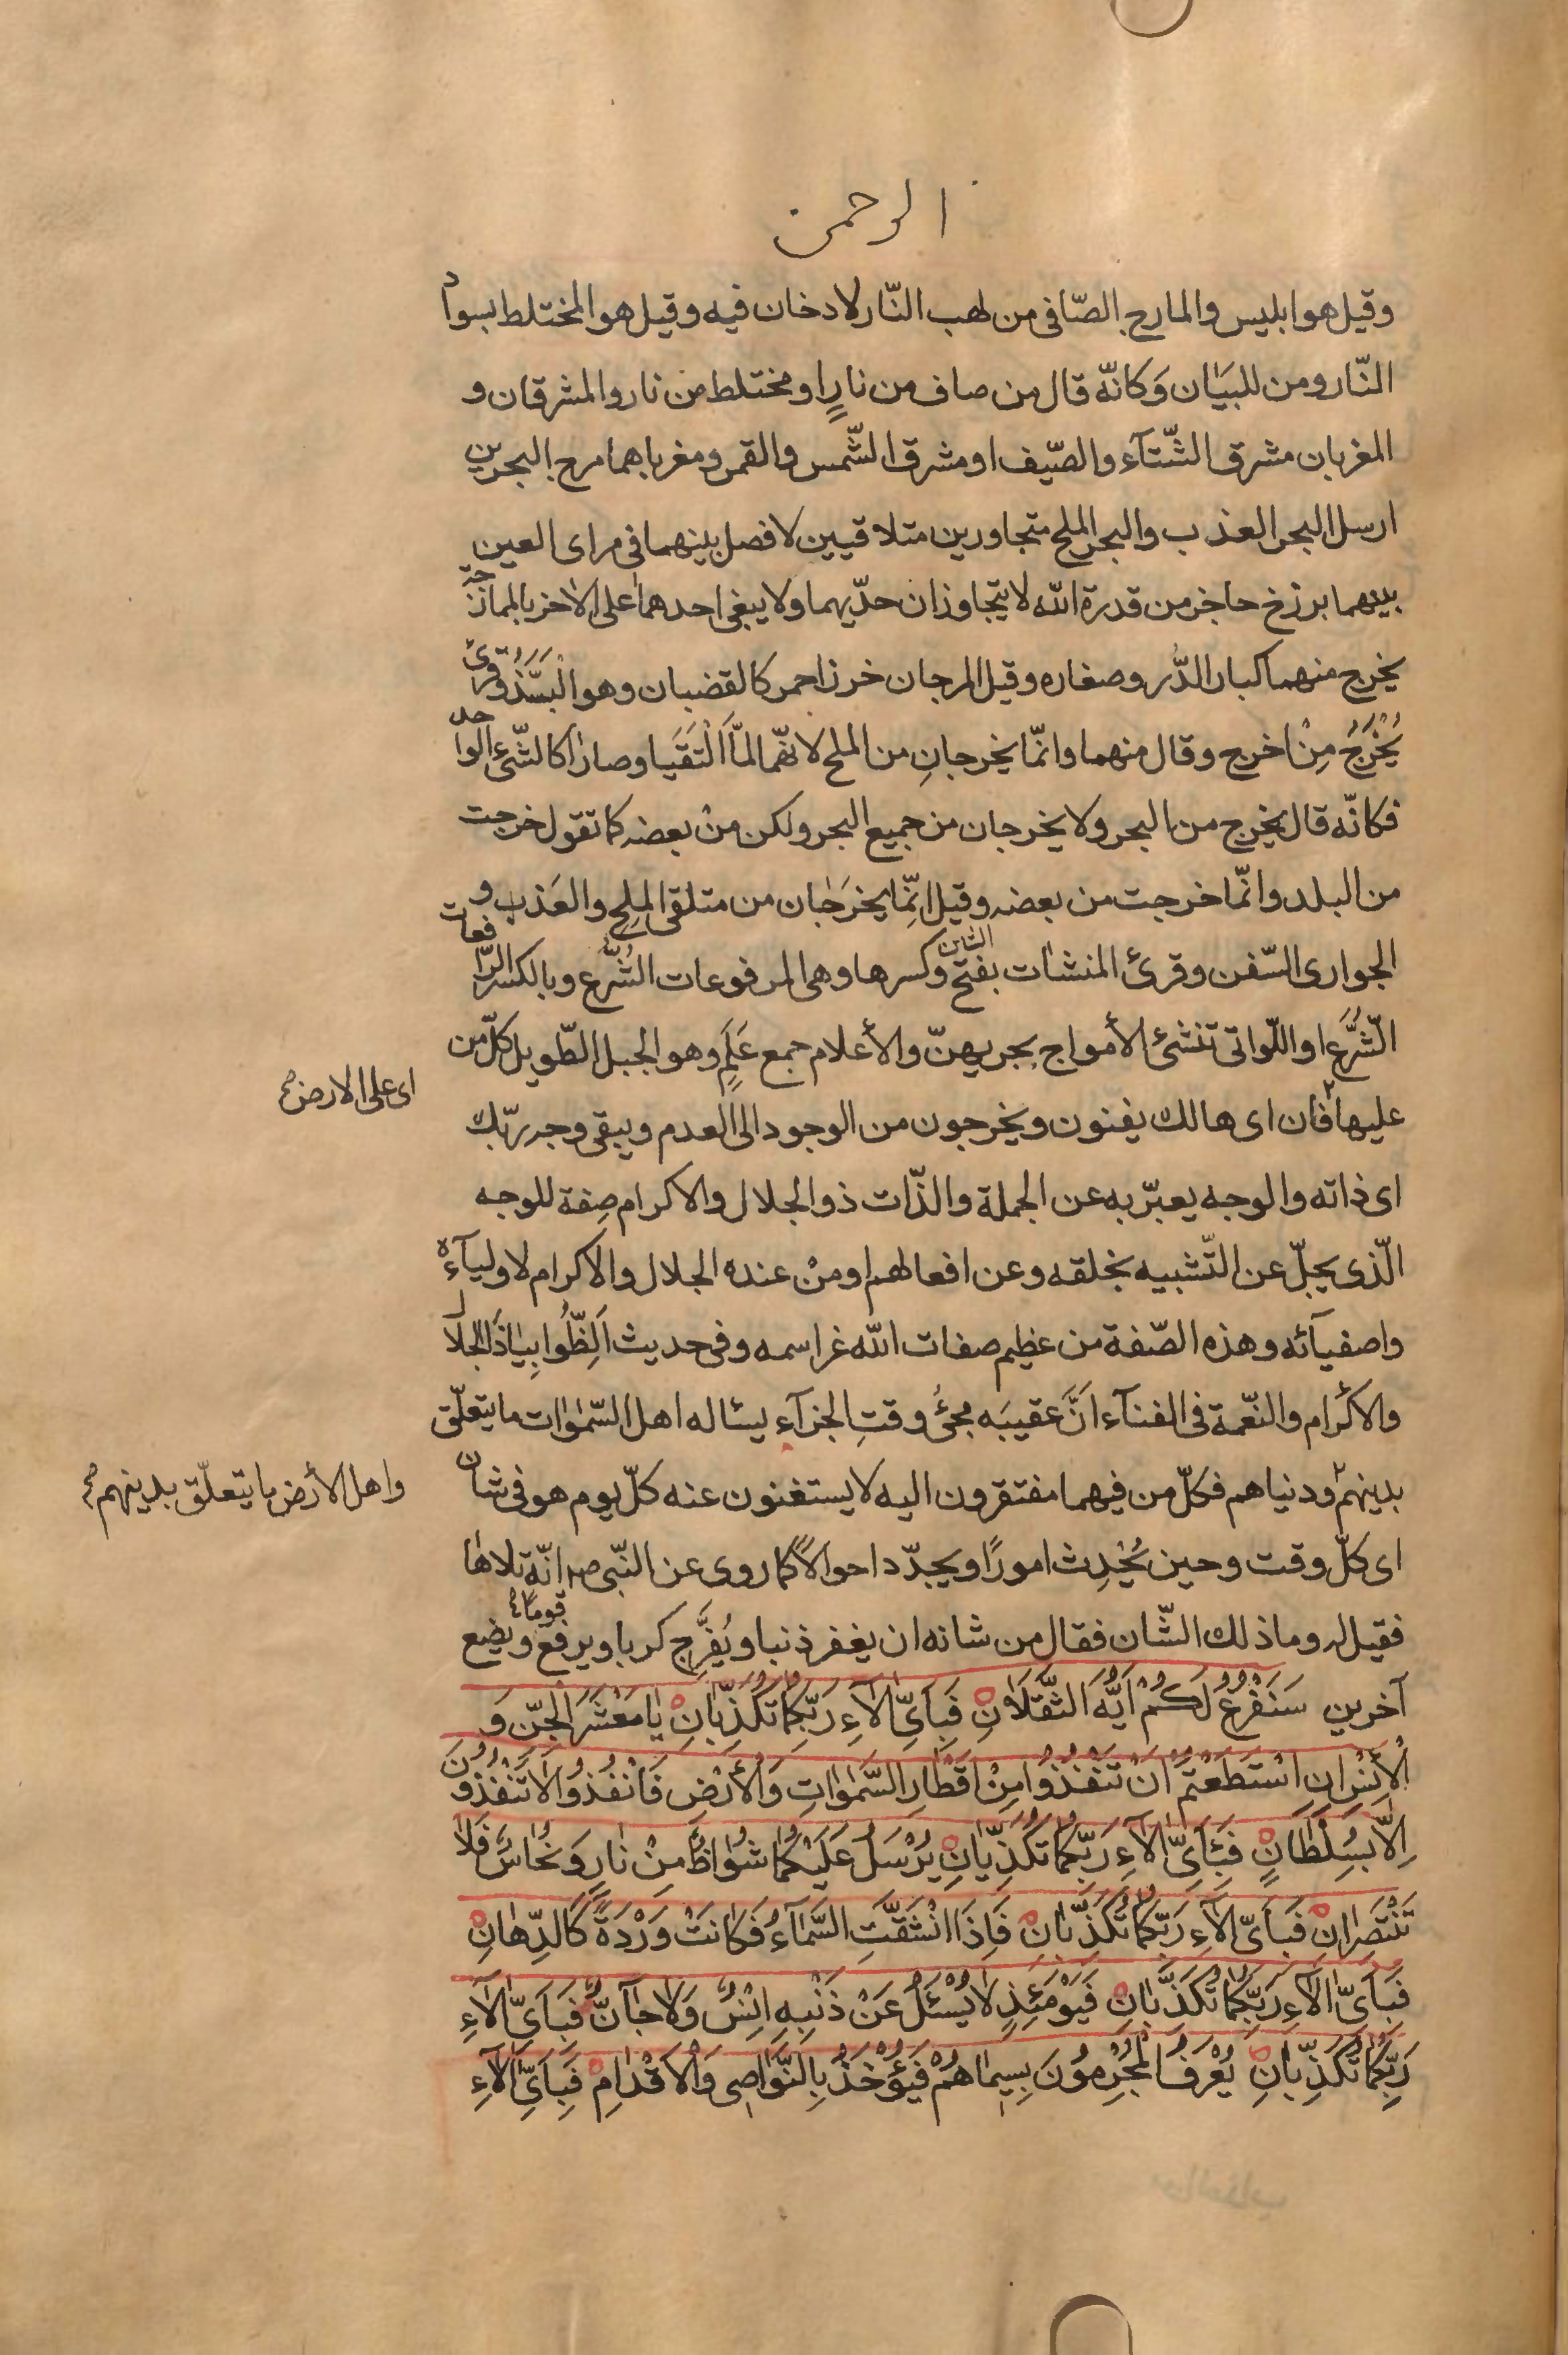 الرحمن
وقيل هو ابليس والمارج الصّافى من لهب النّار لا دخان فيه وقيل هو المختلط بسواد
النّار ومن للبيان وكانّه قال من صاف من نارٍ او مختلط من نار والمشرقان و
المغربان مشرق الشّتآء والصّيف او مشرق الشّمس والقمر ومغرباهما مرج البحرين
ارسل البحر العذب والبحر الملح متجاورين متلاقيين لا فصل بينهما فى مراى العين
بينهما برزخ حاجز من قدرة الله لا يتجاوزان حدّيهما ولا يبغى احدهما على الاخر بالممازجة
يخرج منهما كبار الدُّر وصغاره وقيل المرجان خرز احمر كالقضبان وهو البُسَّذ وقرئ
يُخْرَجُ مِنْ اخرج وقال منهما وانّما يخرجانِ من الملح لانّهما لمّا الْتَقَيا وصارا كالشّئ الواحد
فكانّه قال يخرج من البحر ولا يخرجان من جميع البحر ولكن منْ بعضه كما تقول خرجت
من البلد وانّما خرجت من بعضه وقيل انّما يخرَجان من متلقى الملِح والعَذب و
الجوارى السّفن وقرئ المنشات بفتح الشين وكسرها وهى المرفوعات الشُّرَّع وبالكسر الرّافعات
الشُّرَّع او اللّواتى تنشئ الأمواج بجريهنّ والأعلام جمع عَلَمٍ وهو الجبل الطّويل كلّ من
عليها فان اى هالك يفنون ويخرجون من الوجود الى العدم ويبقى وجه ربّك
اى على الارض صح
اى ذاته والوجه يعبّر به عن الجملة والذّات ذو الجلال والاكرام صِفة للوجه
الّذى يجلّ عن التّشبيه بخلقه وعن افعالهم او منْ عنده الجلال والاكرام لاوليآءه
واصفيآئه وهذه الصّفة من عظيم صفات الله عز اسمه وفى حديث اَلِظُّوا بِيَاذَا الجلال
والاكرام والنّعمة فى الفنآء انَّ عقيبَه مجئَ وقتِ الجزآء يسئاله اهل السّموات ما يتعلّق
بدينهم ودنياهم فكلّ من فيهما مفتقرون اليه لا يستغنون عنه كلّ يوم هو فى شان
واهل الأرض ما يتعلّق بدينهم صح
اى كلّ وقت وحين يُحْدِث امورًا ويجدّد احوالاً كما روى عن النّبى ص انّه تلاها
فقيل له وما ذلك الشّان فقال من شانه ان يغفر ذنبا ويُفَّرِج كربا ويرفع قوما ويضع
آخرين سَنَفْرُغُ لَكُمْ اَيُّهَ الثَّقَلَانِ فَبِاَىِّ الآءِ رَبِّكُمَا تُكَذِّبَانِ يَا مَعْشَرَ الْجِنّ وَ
الْأِنْسِ اِنِ اسْتَطَعْتُمْ اَنْ تَنْفُذُوا مِنْ اَقْطَارِ السَّمٰوَاتِ وَالْأَرْضِ فَانْفُذُوا لَا تَنْفُذُونَ
اِلَّا بِسُلْطَانٍ فَبِاَىِّ الآءِ رَبِّكُمَا تُكَذِّبَانِ يُرْسَلُ عَلَيْكُمَا شُوَاظٌ مِنْ نَارٍ وَنُحَاسٌ فَلَا
تَنْتَصِرَانِ فَبِاَىِّ الآءِ رَبِّكُمَا تُكَذِّبَانِ فَاِذَا انْشَقَّتِ السَّمَآءُ فَكَانَتْ وَرْدَةً كَالدِّهَانِ
فَبِاَىِّ الآءِ رَبِّكُمَا تُكَذِّبَانِ فَيَوْمَئِذٍ لَا يُسْئَلُ عَنْ ذَنْبِهِ اِنْسٌ وَلَا جَآنٌّ فَبِاَىِّ الآءِ
رَبِّكُمَا تُكَذِّبَانِ يُعْرَفُ الْمُجْرِمُونَ بِسِيمَاهُمْ فَيُؤْخَذُ بِالنَّوَاصِى وَالْاَقْدَامِ فَبِاَىِّ الآءِ